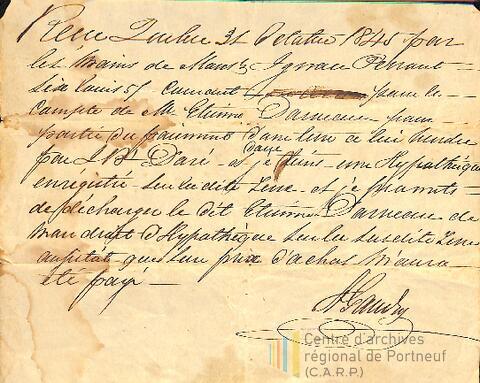 Recu Quebec 31 Octobre 1845 par
les mains de Mons Ignace Perraut
Six louis 5/ courant pour le
Compte de Mr Etienne Darneau pour
partie du paiement d'une terre a lui vendu
par J Bt Dore et je tiens une Hypothèque
enregistré sur la dite Terre et je promets
de décharger le dit Etienne Darneau de
mon droit d'Hypothèque sur la susdite Terre
aussitot que son prix d'achat m'aura
été payé
Centre d'archives
régional de Portneuf
(C.A.R.P.)